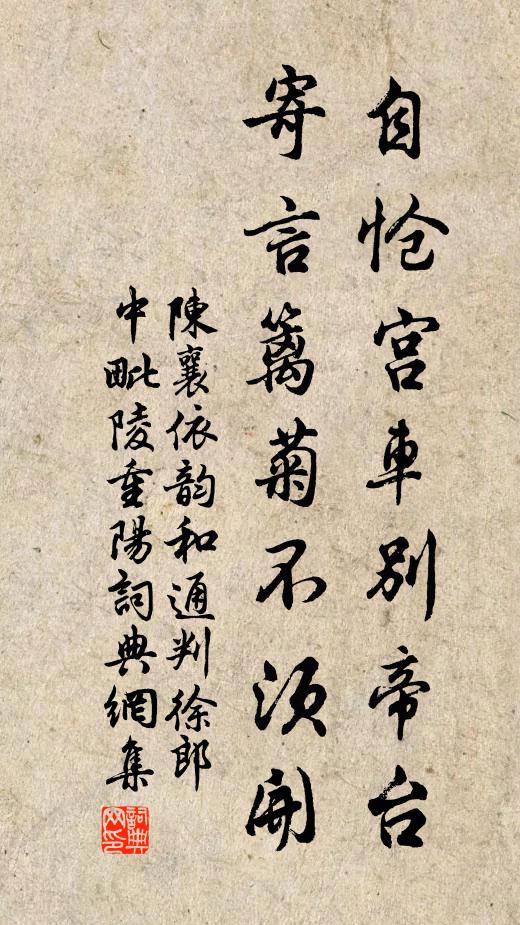 自怆宫車别帝台
寄言籬菊不須開
陳襄依韵和通判徐郎
中毗陵重陽詞典網集
詞典
网印